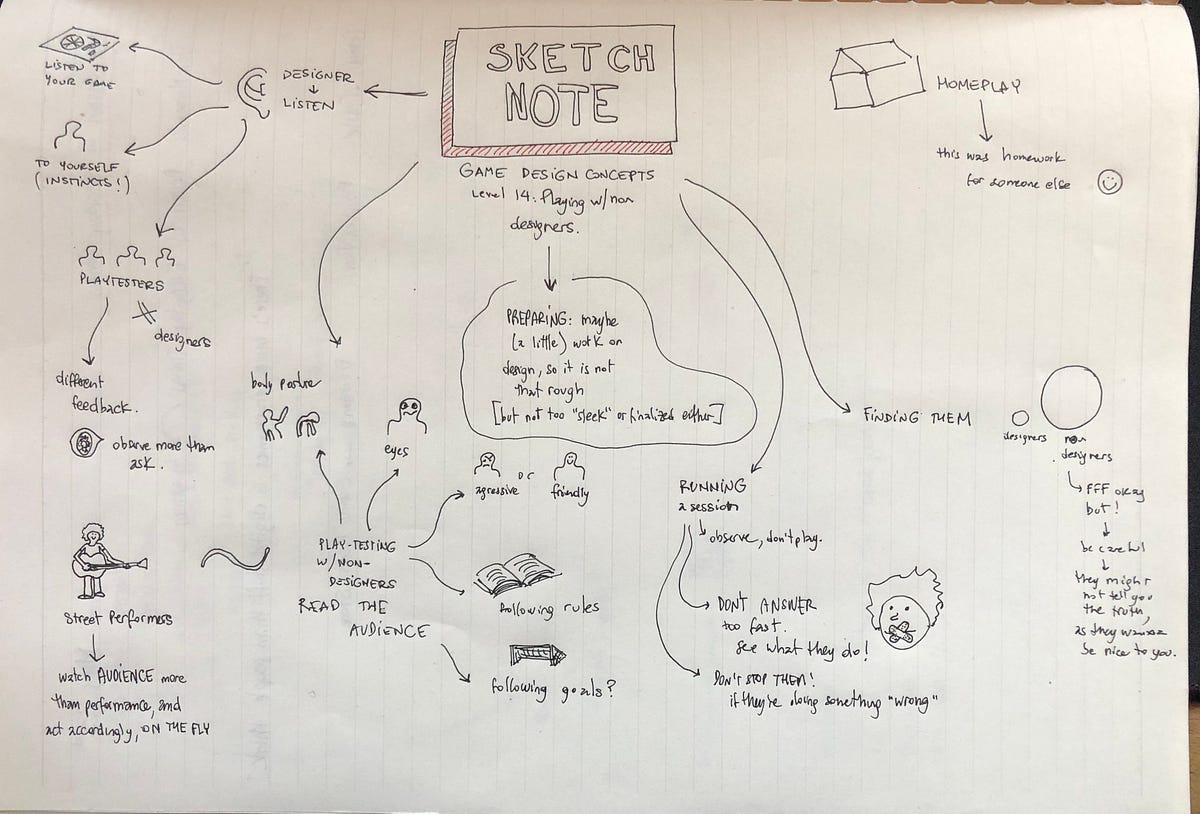 SKETCH
NOTE
GAME DESIGN CONCEPTS
Level 14: Playing w/non
designers.
DESIGNER
LISTEN
LISTEN TO
YOUR GAME
TO YOURSELF
(INSTINCTS!)
PLAYTESTERS
designers
different
feedback.
observe more than
ask.
Street Performers
watch AUDIENCE more
than performance, and
act accordingly, ON THE FLY
PLAY-TESTING
W/NON-
DESIGNERS
READ THE
AUDIENCE
body posture
eyes
agressive
or
friendly
following rules
following goals?
PREPARING: maybe
(a little) work on
design, so it is not
that rough
[but not too "sleek" or finalized either]
RUNNING
a session
observe, don't play.
DON'T ANSWER
too fast.
see what they do!
DON'T STOP THEM!
if they're doing something "wrong"
FINDING THEM
designers
non
designers
FFF okay
but!
be careful
they might
not tell you
the truth,
as they wanna
be nice to you.
HOMEPLAY
this was homework
for someone else